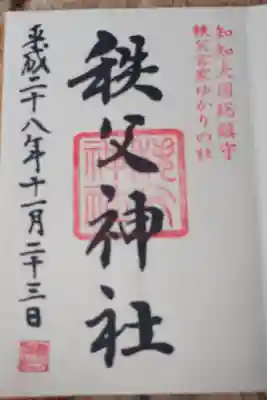 知知夫国総鎮守
秩父宮家ゆかりの社
秩父神社
平成二十八年十一月二十三日